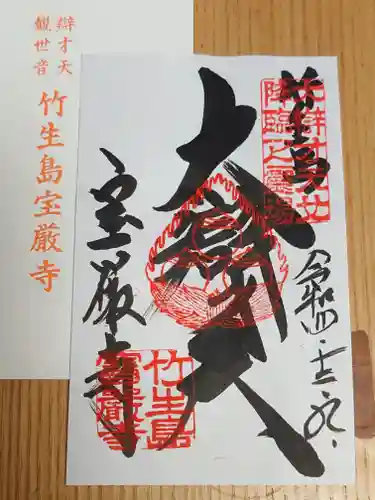 辯才天
觀世音
竹生島宝厳寺
竹生島
大辯才天女
降臨之靈場
令和四
大辯才天
宝厳寺
竹生島
寶嚴寺